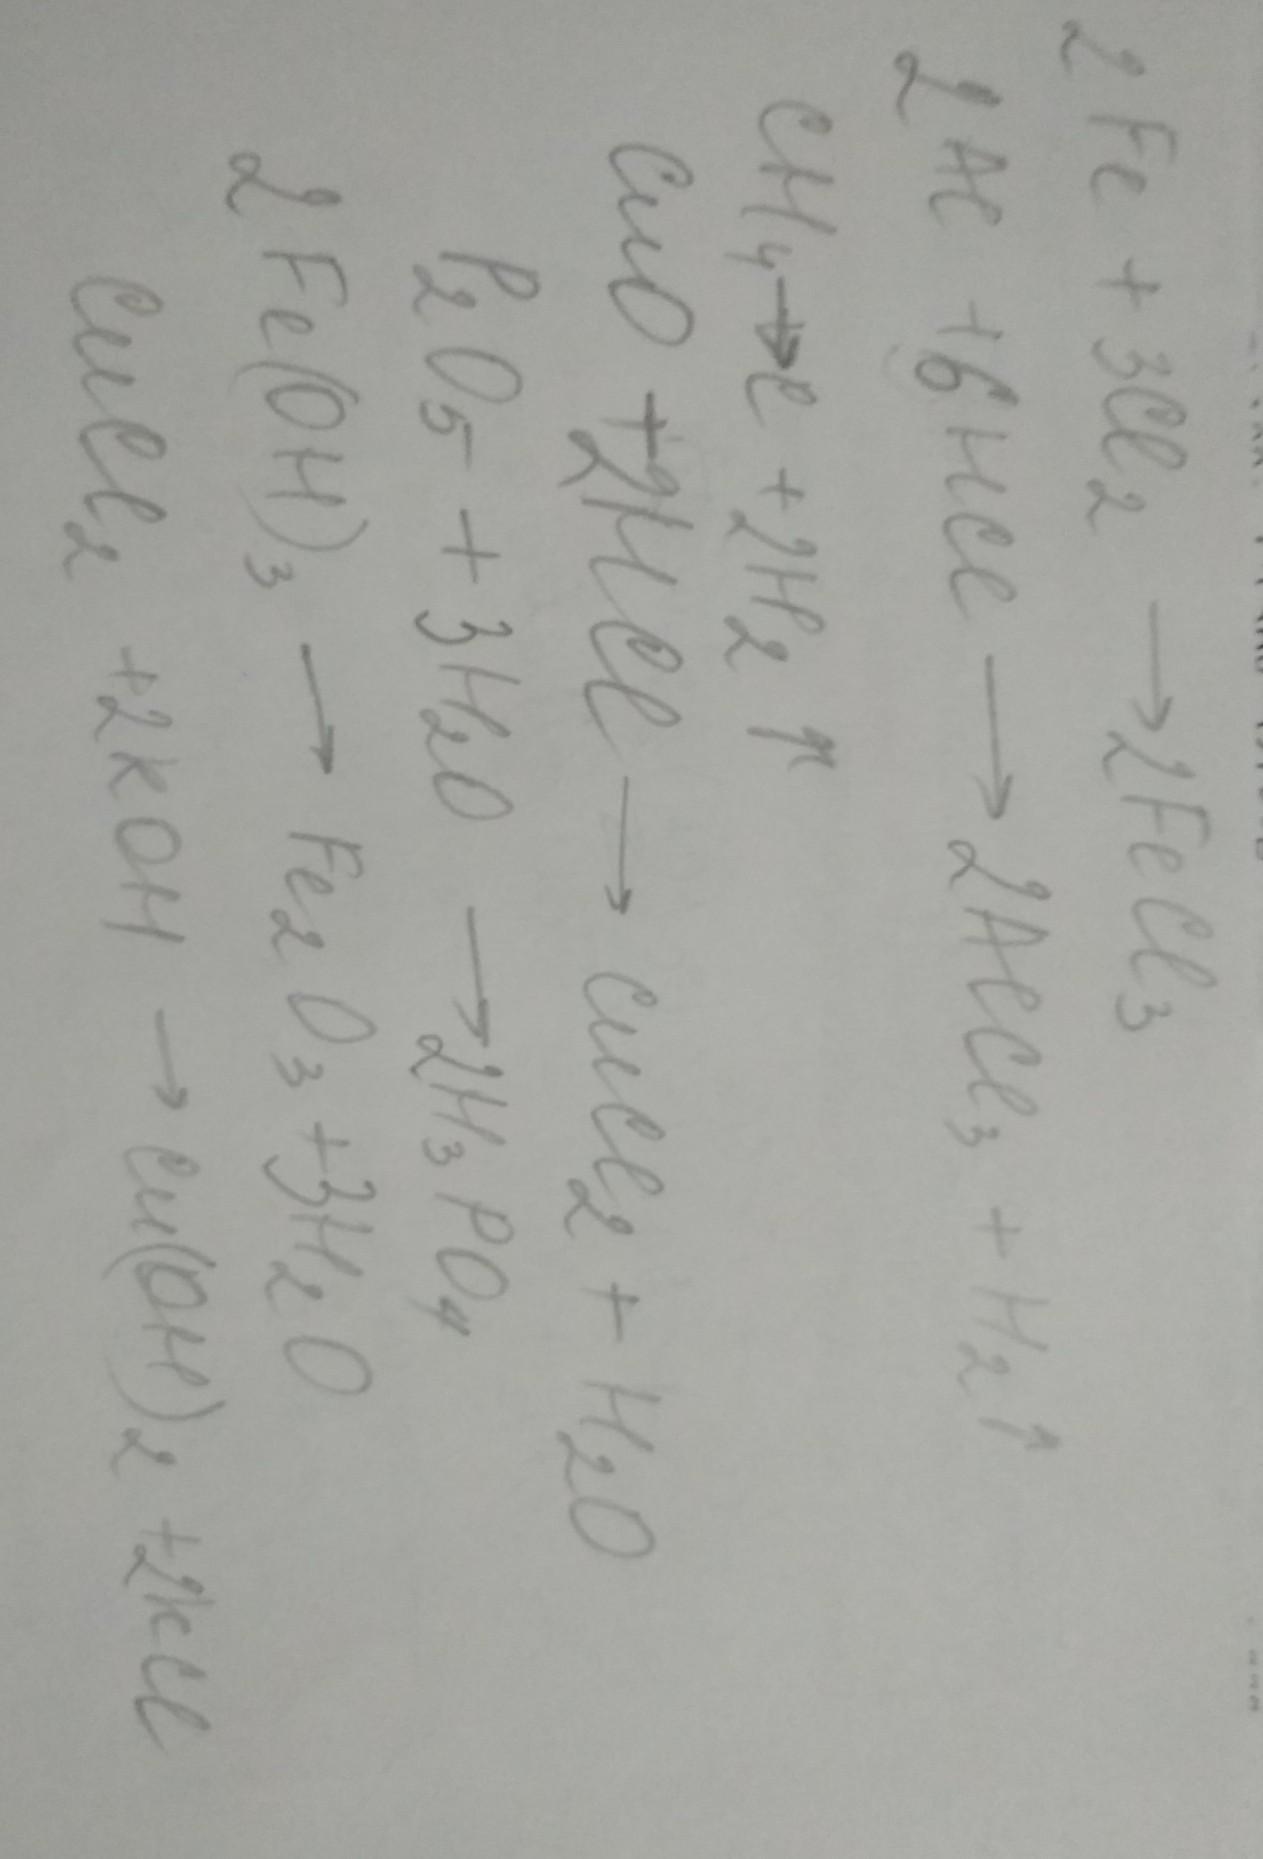 2Fe + 3Cl₂ → 2FeCl₃
2Al + 6HCl → 2AlCl₃ + H₂↑
CH₄ → C + 2H₂↑
CuO + 2HCl → CuCl₂ + H₂O
P₂O₅ + 3H₂O → 2H₃PO₄
2Fe(OH)₃ → Fe₂O₃ + 3H₂O
CuCl₂ + 2KOH → Cu(OH)₂ + 2KCl